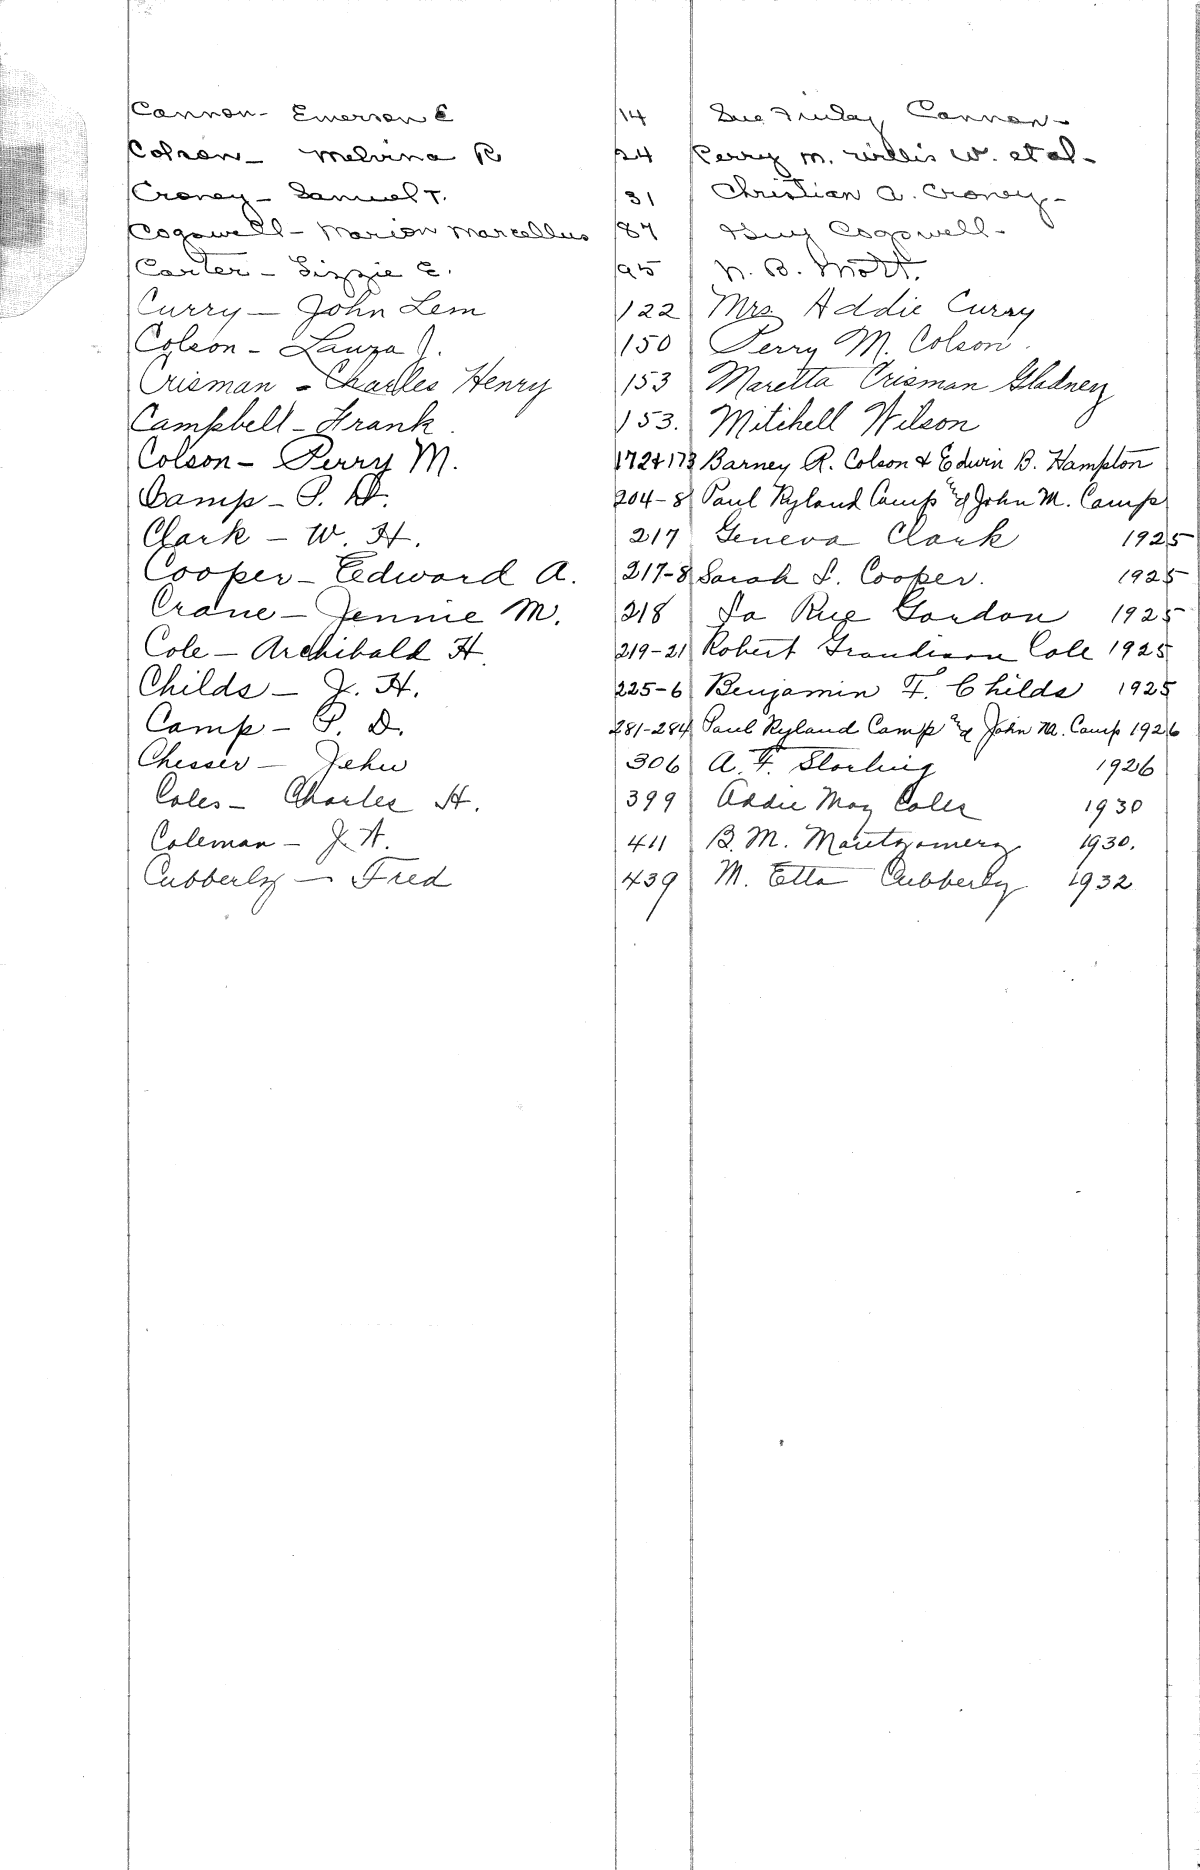 Cannon- Emerson E 14 Sue Finlay Cannon-
Colson- Melvina R 24 Perry M. Willis W. et al-
Croney- Samuel T. 31 Christian A. Croney-
Cogswell- Marion Marcellus 87 Guy Cogswell-
Carter- Lizzie E. 95 N. B. Mott.
Curry- John Lem 122 Mrs Addie Curry
Colson- Laura J. 150 Perry M. Colson.
Crisman- Charles Henry 153 Maretta Crisman Gladney
Campbell- Frank. 153. Mitchell Wilson
Colson- Perry M. 172+173 Barney R. Colson & Edwin B. Hampton
Camp- P. D. 204-8 Paul Ryland Camp and John M. Camp
Clark- W. H. 217 Geneva Clark 1925
Cooper- Edward A. 217-8 Sarah L. Cooper. 1925
Crane- Jennie M. 218 La Rue Gordon 1925
Cole- Archibald H. 219-21 Robert Grandison Cole 1925
Childs- J. H. 225-6 Benjamin F. Childs 1925
Camp- P. D. 281-284 Paul Ryland Camp and John M. Camp 1926
Chesser- Jehu 306 A. F. Starling 1926
Coles- Charles H. 399 Addie May Coles 1930
Coleman- J. A. 411 B. M. Montgomery 1930.
Cubberly- Fred 439 M. Etta Cubberly 1932